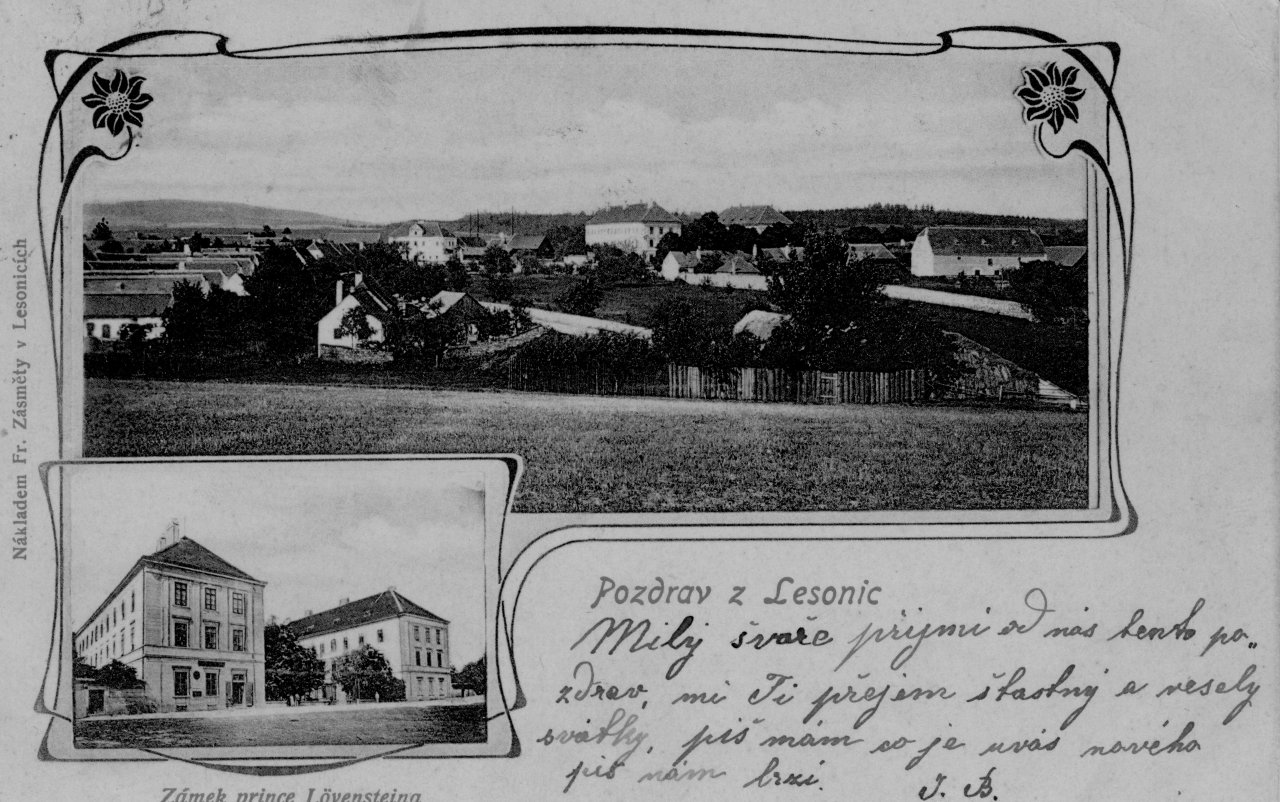 Nákladem Fr. Zásměty v Lesonicích
Pozdrav z Lesonic
Milý švaře přijmi od nás tento po„
zdrav, mi Ti přejem štastný a vesely
svátky, piš mám co je uvás nového
piš nám brzi. J. B.
Zámek prince Lövensteina